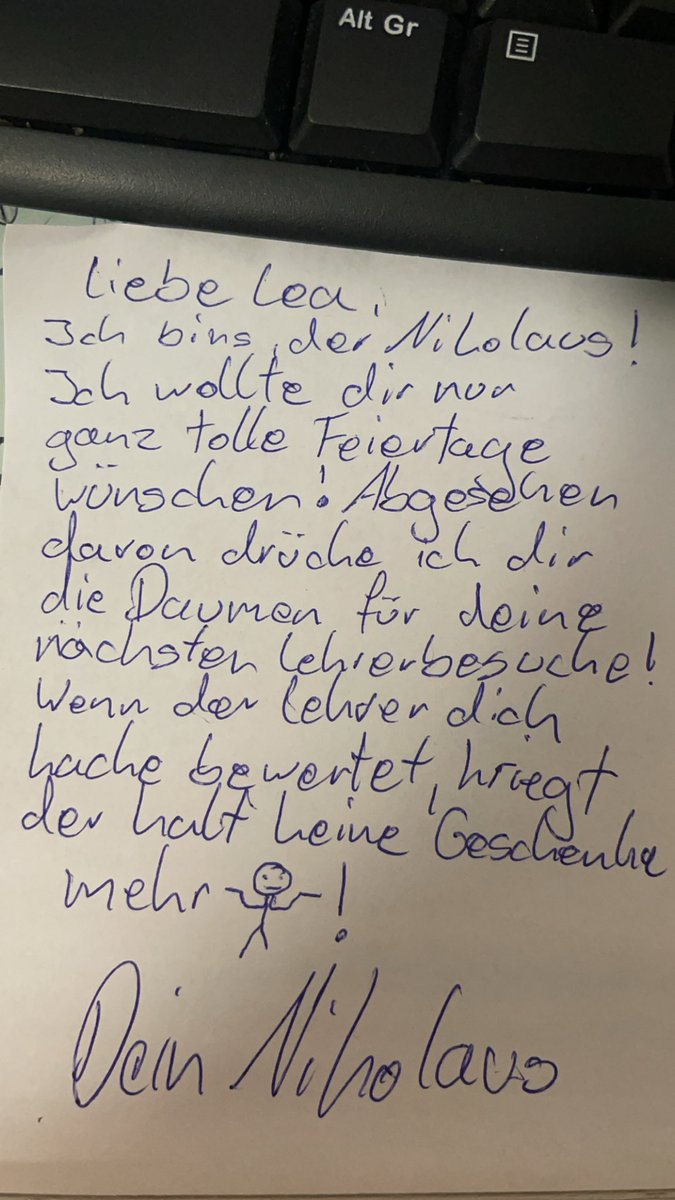 Alt Gr
Liebe Lea,
Ich bins, der Nikolaus!
Ich wollte dir nur
ganz tolle Feiertage
wünschen! Abgesehen
davon drücke ich dir
die Daumen für deine
nächsten Lehrerbesuche!
Wenn der Lehrer dich
kacke bewertet, kriegt
der halt keine Geschenke
mehr !
Dein Nikolaus